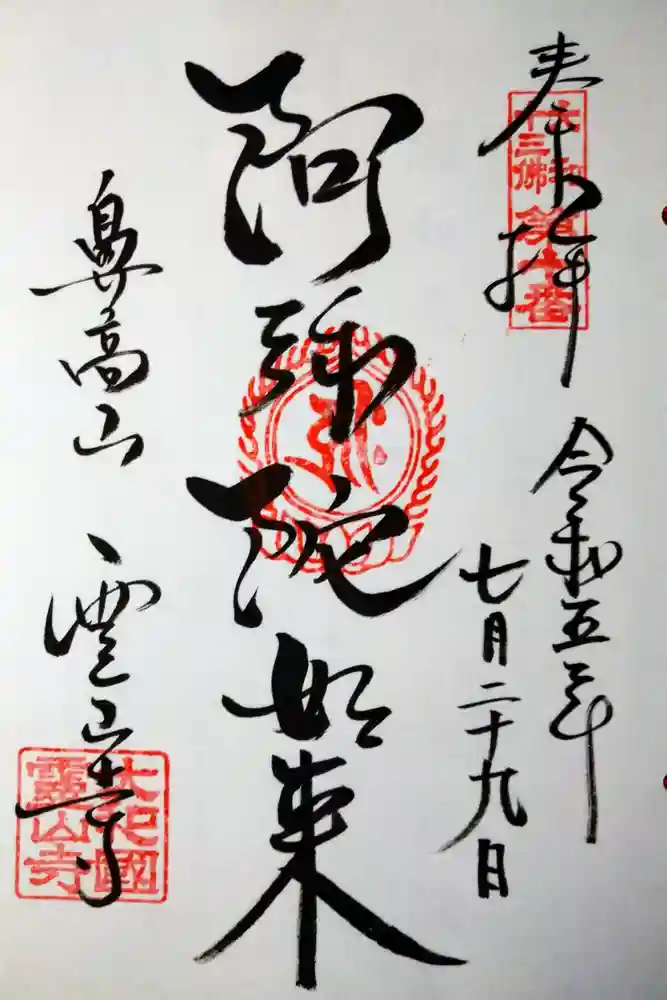 奉拝
大和
十三佛
第十番
令和五年
七月二十九日
阿弥陀如来
鼻高山 霊山寺
大和國
霊山寺